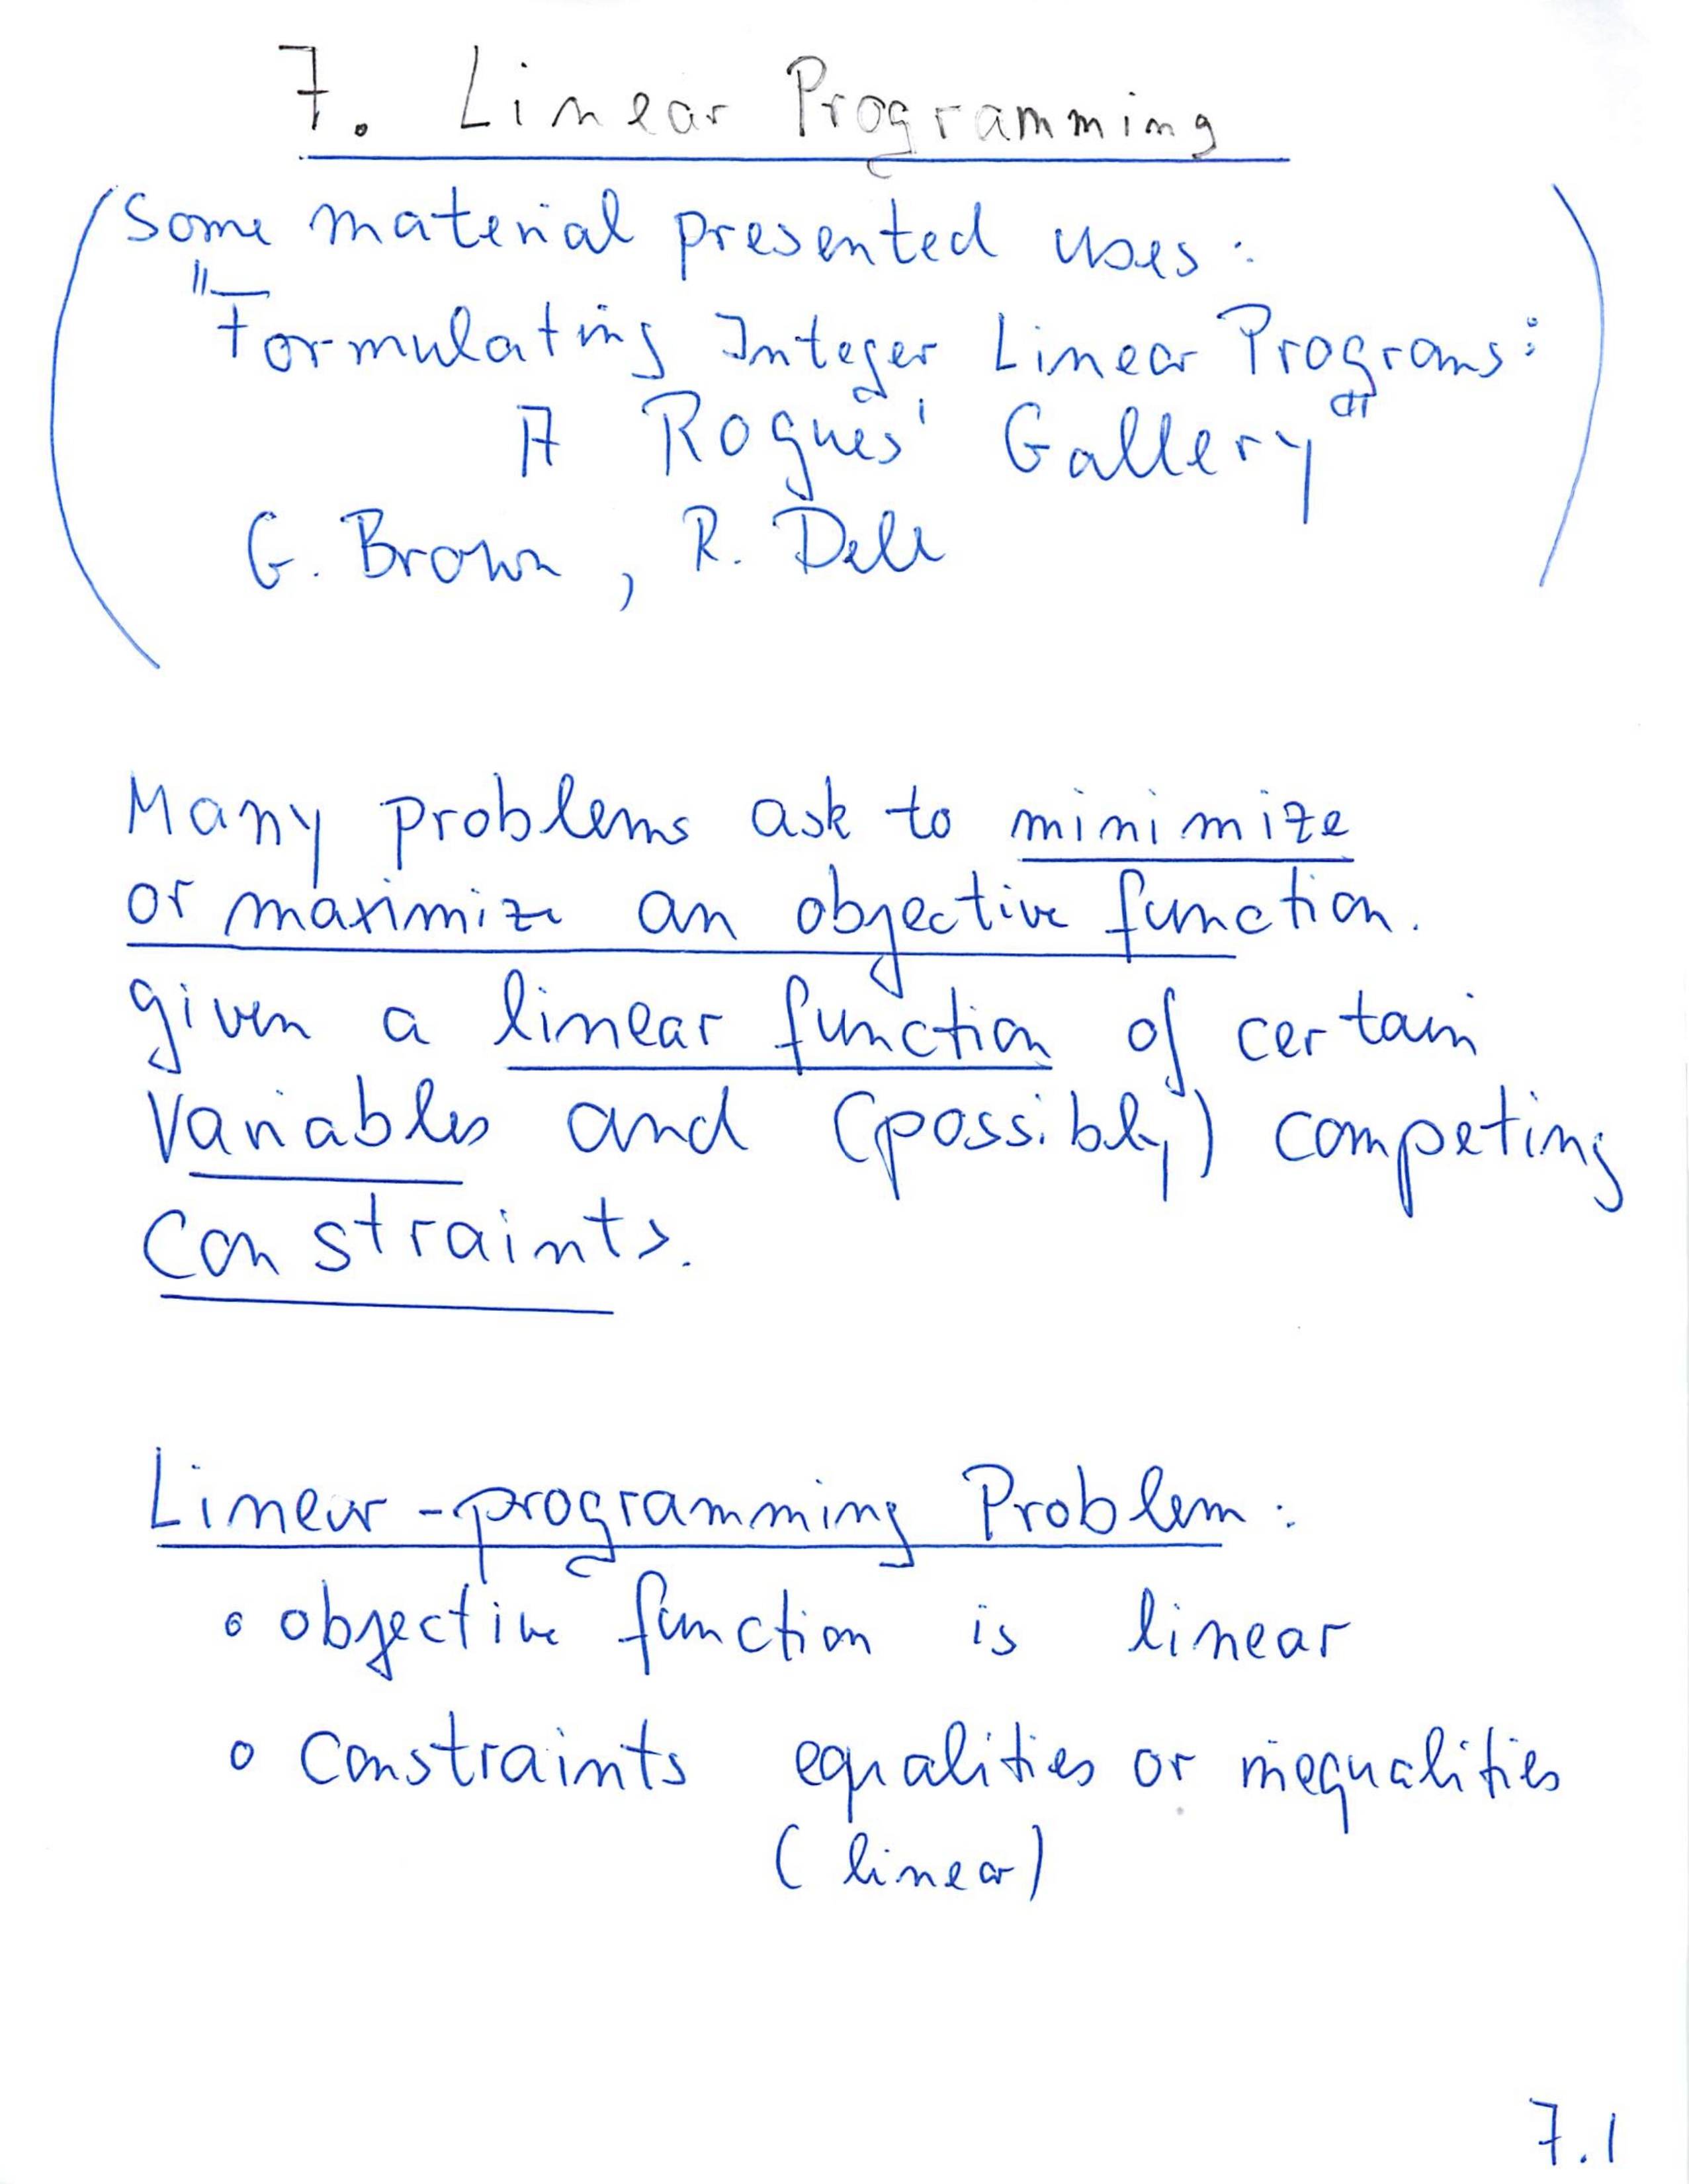 7. Linear Programming
(Some material presented uses:
"Formulating Integer Linear Programs:
A Rogues' Gallery"
G. Brown, R. Dell)
Many problems ask to minimize
or maximize an objective function.
given a linear function of certain
variables and (possibly) competing
constraints.
Linear-programming Problem:
o objective function is linear
o constraints equalities or inequalities
(linear)
7.1